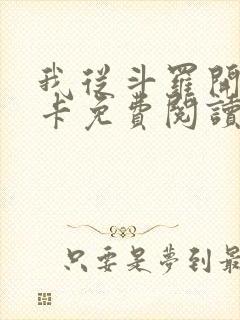 我從斗羅開
卡免費閱讀
只要是夢到最